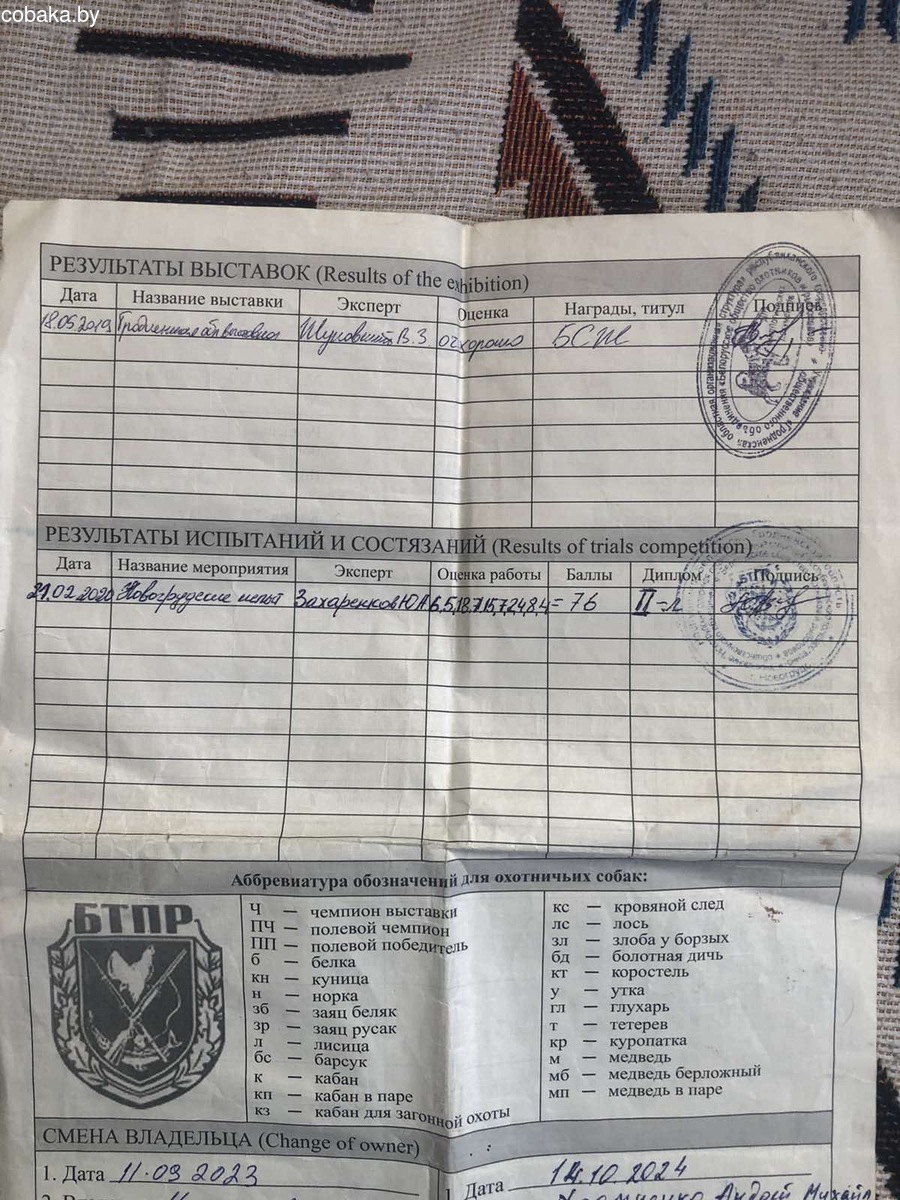 cobaka.by
РЕЗУЛЬТАТЫ ВЫСТАВОК (Results of the exhibition)
Дата Название выставки Эксперт Оценка Награды, титул Подпись
18.05.2019 Гродненская обл выставка В.З оч хорошо
РЕЗУЛЬТАТЫ ИСПЫТАНИЙ И СОСТЯЗАНИЙ (Results of trials competition)
Дата Название мероприятия Эксперт Оценка работы Баллы Диплом Подпись
21.02.2020 Новогрудские Захаренков Ю.А = 76 II-л
Аббревиатура обозначений для охотничьих собак:
БТПР
Ч — чемпион выставки
ПЧ — полевой чемпион
ПП — полевой победитель
б — белка
кн — куница
н — норка
зб — заяц беляк
зр — заяц русак
л — лисица
бс — барсук
к — кабан
кп — кабан в паре
кз — кабан для загонной охоты
кс — кровяной след
лс — лось
зл — злоба у борзых
бд — болотная дичь
кт — коростель
у — утка
гл — глухарь
т — тетерев
кр — куропатка
м — медведь
мб — медведь берложный
мп — медведь в паре
СМЕНА ВЛАДЕЛЬЦА (Change of owner)
1. Дата 11.09 2023
Дата 14.10.2024